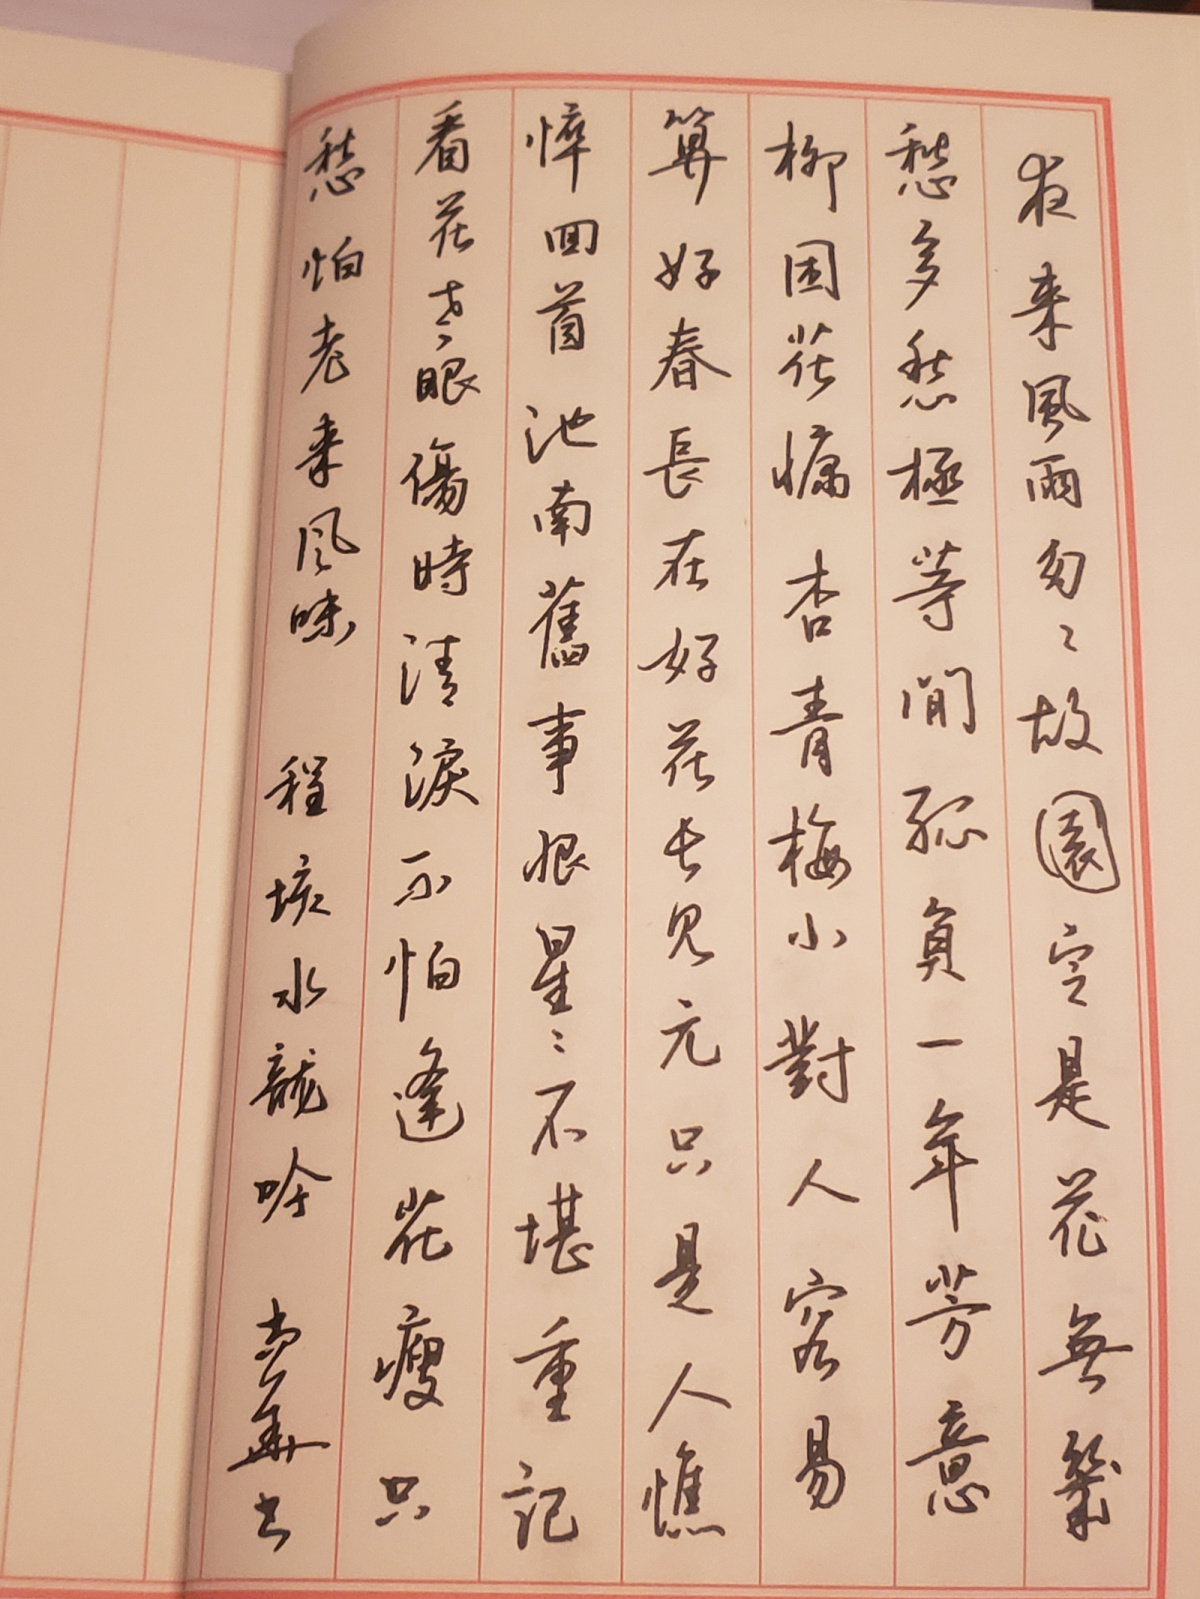 夜来風雨匆〻故園空是花無幾
愁多愁極等閒孤負一年芳意
柳困花慵杏青梅小對人容易
算好春長在好花長見元只是人憔
悴回首池南舊事恨星〻不堪重記
看花老眼傷時清淚不怕逢花瘦只
愁怕老来風味 程垓水龍吟 書